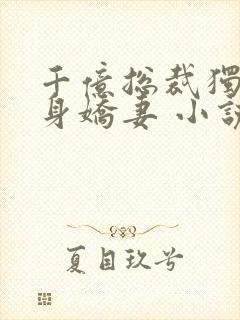 千億總裁獨
身嬌妻 小說
夏目玖号